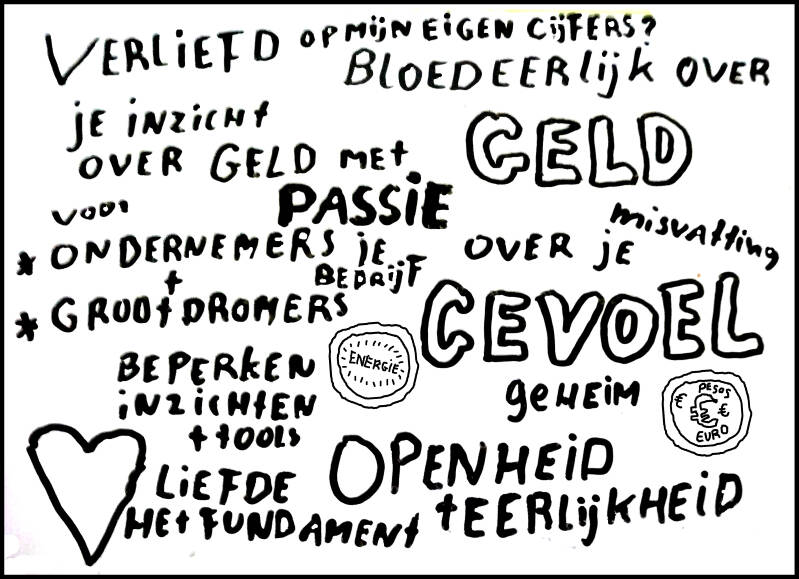 VERLIEFD OP MIJN EIGEN CIJFERS?
BLOEDEERLIJK OVER
JE INZICHT
OVER GELD MET
GELD
PASSIE
VOOR
misvatting
* ONDERNEMERS JE
OVER JE
BEDRIJF
+
* GROOTDROMERS
GEVOEL
BEPERKEN
ENERGIE
INZICHTEN
geHEIM
PESOS
€ € €
EURO
+ TOOLS
OPENHEID
LIEFDE
+ EERLIJKHEID
HET FUNDAMENT